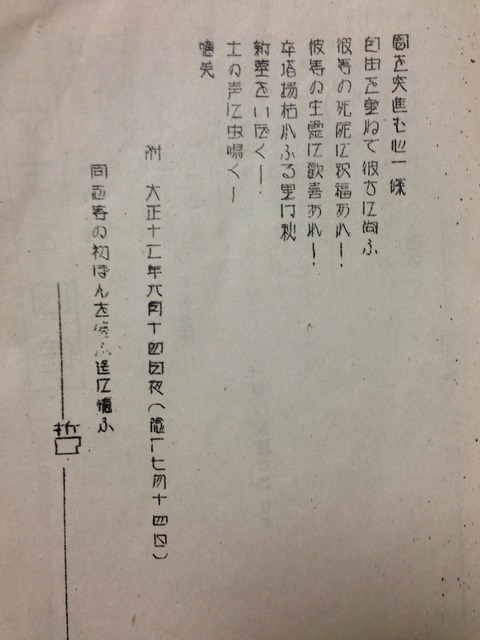 闇を突進む心一条
自由を重ねて彼方に向ふ
彼等の死屍に祝福あれー
彼等の生霊に歓喜あれー
卒塔場枯れふる里に秋
新墓をいだくー
土の声に虫鳴くー
噫矣
附 大正十二年八月十四日夜(陰 七月十四日)
同 等の初ぼんを 遥に懐ふ
哲